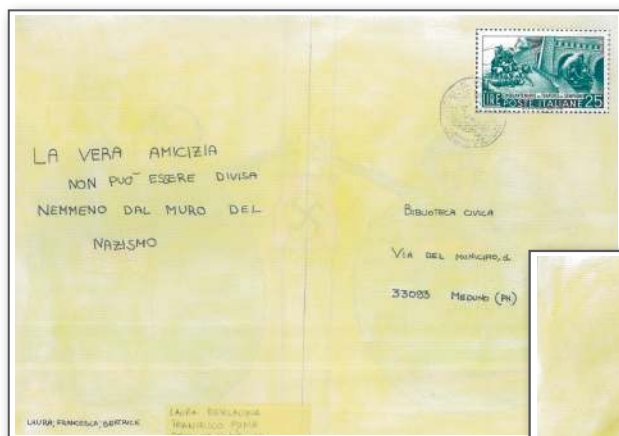 LIRE POSTE ITALIANE 25
LA VERA AMICIZIA
NON PUO' ESSERE DIVISA
NEMMENO DAL MURO DEL
NAZISMO
BIBLIOTECA CIVICA
VIA DEL MUNICIPIO,
33093 MEDUNO (PN)
LAURA, FRANCESCA, BEATRICE
LAURA